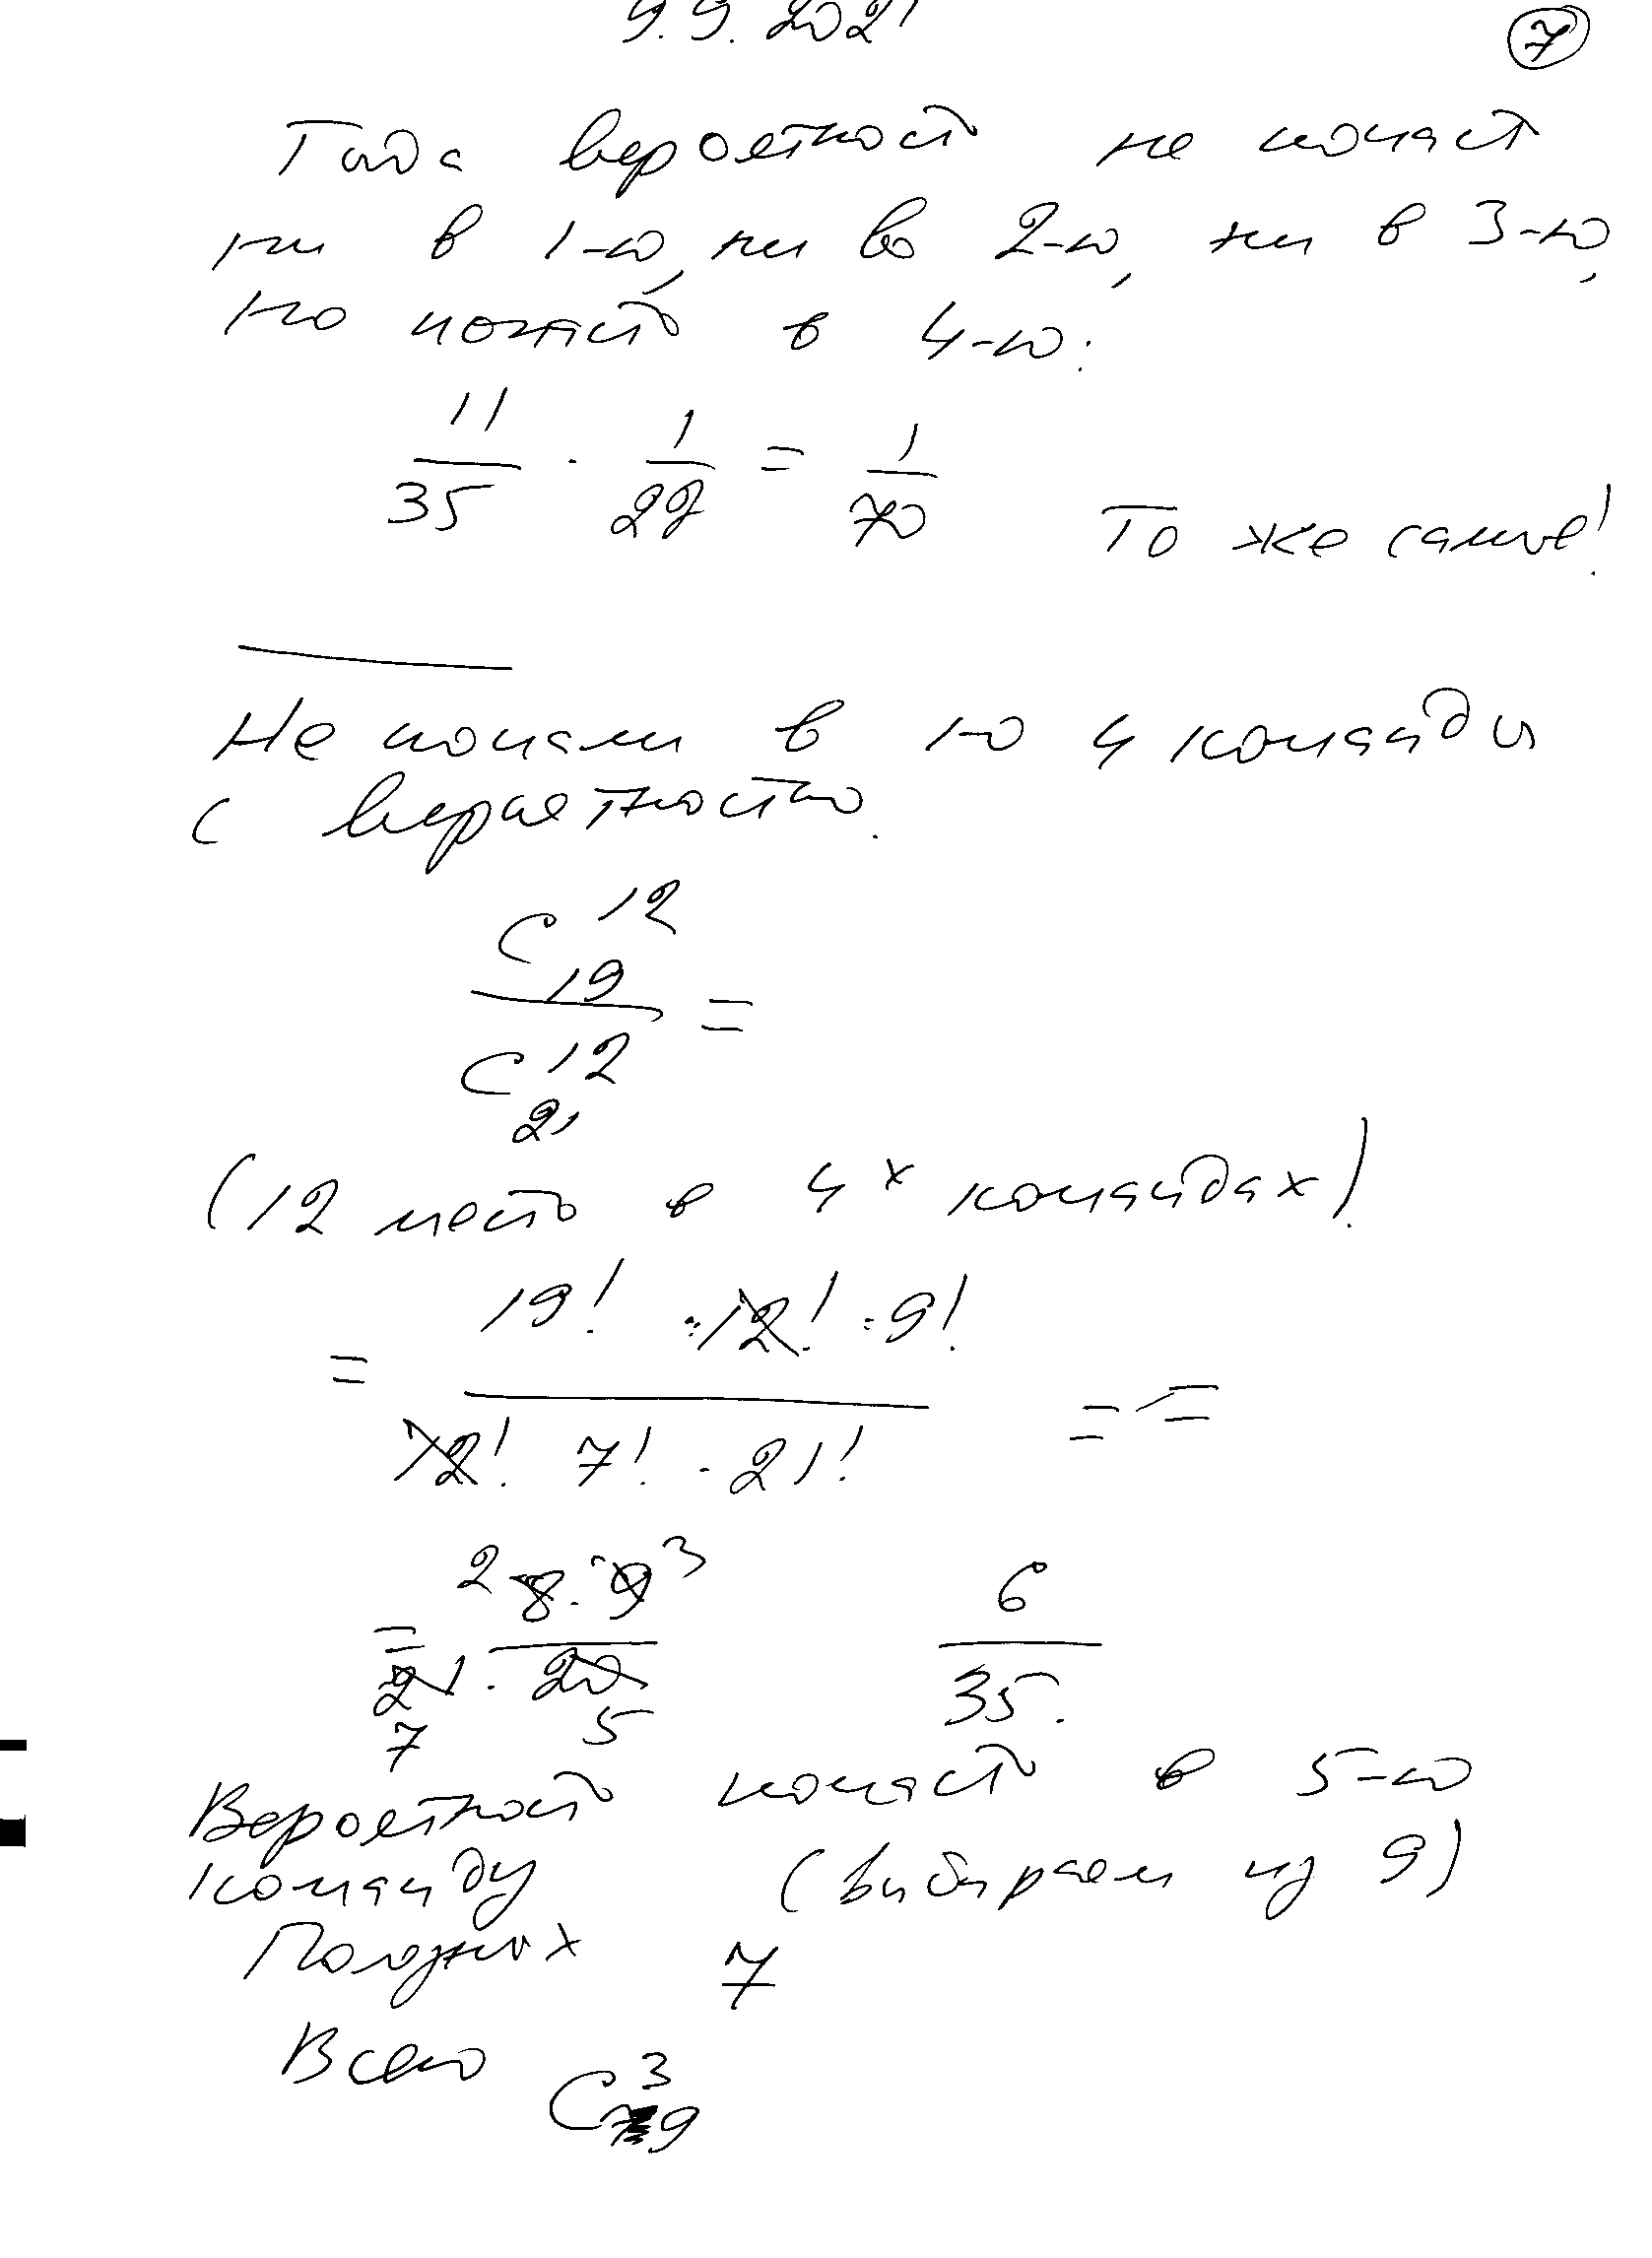 9.9.2021
7
Тогда вероятность не попасть
ни в 1-ю, ни во 2-ю, ни в 3-ю,
но попасть в 4-ю:
11/35 · 1/22 = 1/70 То же самое!
Не попали в 1-ю 4 команды
с вероятностью.
C₁₉¹² / C₂₁¹² =
(12 мест в 4х командах)
= 19! · 12! · 9! / 12! 7! · 21! = =
= 2 8 · 9 3 / 21 · 20 6/35.
7 5
Вероятность попасть в 5-ю
команду (выбираем из 9)
Полезных 7
Всего C₉³